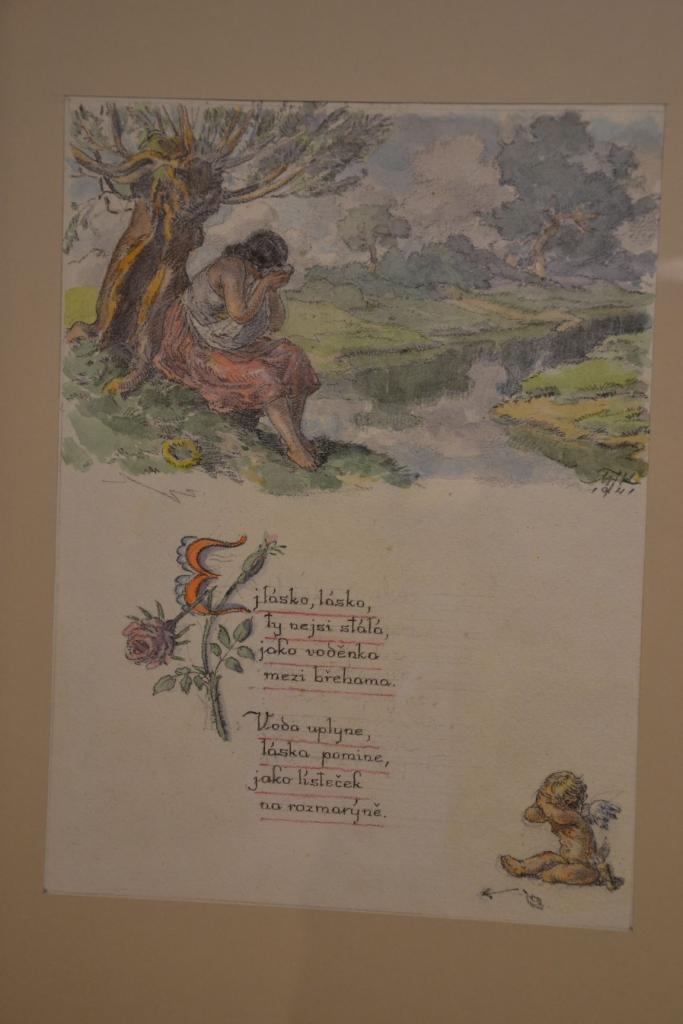 1941
Ej lásko, lásko,
ty nejsi stálá,
jako voděnka
mezi břehama.
Voda uplyne,
láska pomine,
jako lísteček
na rozmarýně.